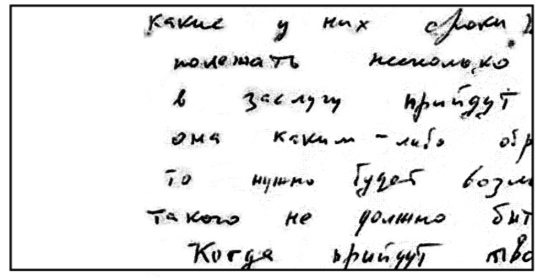 какие у них сроки
полежать несколько
в заслугу прийдут
она каким-либо обр
то нужно будет возм
такого не должно быт
Когда прийдут тво